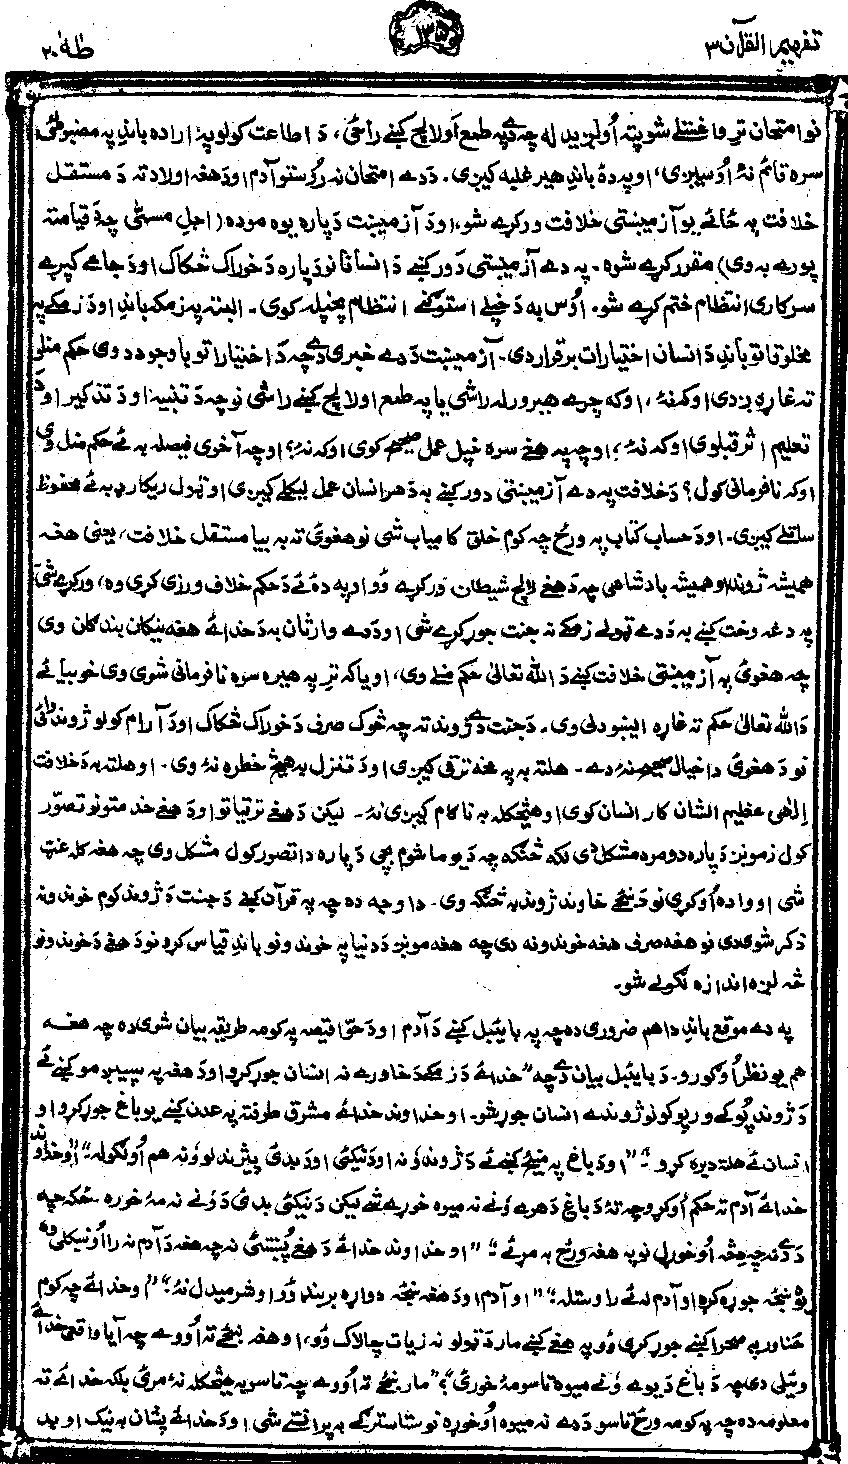 تفهیم القرآن ۳
۱۳۵
طٰهٰ ۲۰
نو امتحان تر واخستلے شو پته اُولږیدله چه دے په طمع اَو لالچ کښے راځی، دَ اطاعت کولو پۀ اراده باندِ په مضبوطئ
سره قائم نۀ اُوسیږی، اوپه دۀ باندِ هیر غلبه کیږی. دَدے امتحان نه رُوستو آدم اودَهغه اولاد ته دَ مستقل
خلافت په ځائے یو آزمیښتی خلافت ورکړے شو، اودَ آزمیښت دَپاره یوه موده (اجلِ مسمّٰی چه دَقیامته
پورے به وی) مقرر کړے شوه. په دے آزمیښتی دَور کښے دَ انسانانو دَپاره دَخوراک څکاک اودَ جامے کپړے
سرکاری انتظام ختم کړے شو. اوُس به دَخپلے استوګنے انتظام پخپله کوی. البته په زمکه باندِ او دَ زمکے په
مخلوقاتو باندِ دَ انسان اختیارات برقرار دی. آزمیښت دَدے خبرے دے چه دَ اختیاراتو باوجود دوی حکم منلو
ته غاړه ږدی اوکه نۀ، اوکه چرے هیر ورله راشی یا په طمع او لالچ کښے راشی نو چه دَ تنبیه او دَ تذکیر او دَ
تعلیم اثر قبلوی اوکه نۀ؟ اوچه په هغے سره خپل عمل صحیح کوی اوکه نۀ؟ اوچه آخری فیصله به ئے حکم منل وی
اوکه نافرمانی کول؟ دَخلافت په دے آزمیښتی دور کښے به دَهر انسان عمل لیکلے کیږی او ټول ریکارډ به ئے محفوظ
ساتلے کیږی. اودَ حساب کتاب په ورځ چه کوم خلق کامیاب شی نو هغوئ ته به بیا مستقل خلافت، یعنی هغه
همیشه ژوند او همیشه بادشاهی چه دَهغے لالچ شیطان ورکړے وو او په دۀ ئے دَحکم خلاف ورزی کړی وه، ورکړے شی
په دغه وخت کښے به دَدے ټولے زمکے نه جنت جوړ کړے شی اودَدے وارثان به دَخدائے هغه نیکان بندګان وی
چه هغوئ په آزمیښتی خلافت کښے دَ اللّٰه تعالیٰ حکم منلے وی، او یا که تر په هیره سره نافرمانی شوی وی خو بیا ئے
دَاللّٰه تعالیٰ حکم ته غاړه ایښودلی وی. دَجنت دے ژوند ته چه څوک صرف دَخوراک څکاک اودَ آرام کولو ژوند وائی
نو دَ هغوئ دا خیال صحیح نۀ دے. هلته به په مخه ترقی کیږی اودَ تنزل به هیڅ خطره نۀ وی. اوهلته به دَخلافت
اِلٰهی عظیم الشان کار انسان کوی او هیڅکله به ناکام کیږی نۀ. لیکن دَهغے ترقیاتو اودَ هغے خدمتونو تصوّر
کول زمونږ دَپاره دومره مشکل دی لکه څنګه چه دَ یو ماشوم بچی دَپاره دا تصور کول مشکل وی چه هغه کله غټ
شی او واده اُوکړی نو دَښځے خاوند ژوند به څنګه وی. دا وجه ده چه په قرآن کښے دَجنت دَ ژوند کوم خوندونه
ذکر شوی دی نو هغه صرف هغه خوندونه دی چه هغه مونږ دَ دنیا په خوندونو باندِ قیاس کړو نو دَ هغے دَخوندونو
څه لږه اندازه لګولے شو.
په دے موقع باندِ دا هم ضروری ده چه په بائیبل کښے دَ آدم اودَ حوّا قیصه په کومه طریقه بیان شوی ده چه هغه
هم یو نظر اُوګورو. دَ بائیبل بیان دے چه "خدائے دَ زمکے دَ خاورے نه انسان جوړ کړو اودَ هغه په سپیږمو کښے ئے
دَ ژوند پُوکے ورپوکولو ژوندے انسان جوړ شو. او خداوند خدائے مشرق طرفته په عدن کښے یو باغ جوړ کړو او
انسان ئے هلته دیره کړو". "اودَ باغ په مینځ کښے ئے دَ ژوندؤ نه اودَ نیکئ اودَ بدئ پیژندلوؤ نه هم اُولګوله". "اوخداوند
خدائے آدم ته حکم اُوکړو چه تۀ دَ باغ دَ هرے وُنے نه میوه خوړے شے لیکن دَ نیکئ بدئ دَوُنے نه مۀ خوره. ځکه چه
دَدے نه چه څه اُوخورل نو په هغه ورځ به مرئے". "او خداوند خدائے دَ هغے پُښتئ نه چه هغه دَآدم نه را اُوښکلی وه
یوه ښځه جوړه کړه او آدم له ئے راوستله". "او آدم اودَ هغه ښځه دواړه بربنډ وُو او شرمیدل نۀ". "وخدائے چه کوم
ځناور په صحرا کښے جوړ کړی وُو په هغے کښے مار دَ ټولو نه زیات چالاک وُو، او هغه ښځے ته اُووے چه آیا واقعی خدائے
وئیلی دی چه دَ باغ دَیوے وُنے میوه تاسو مۀ خورئ؟" مار ښځے ته اُووے چه تاسو به هیڅکله نۀ مرئ بلکه خدائے ته
معلومه ده چه په کومه ورځ تاسو دَدے نه میوه اُوخوړه نو ستاسو سترګے به پرانستے شی اودَ خدائے پشان به نیک او بد